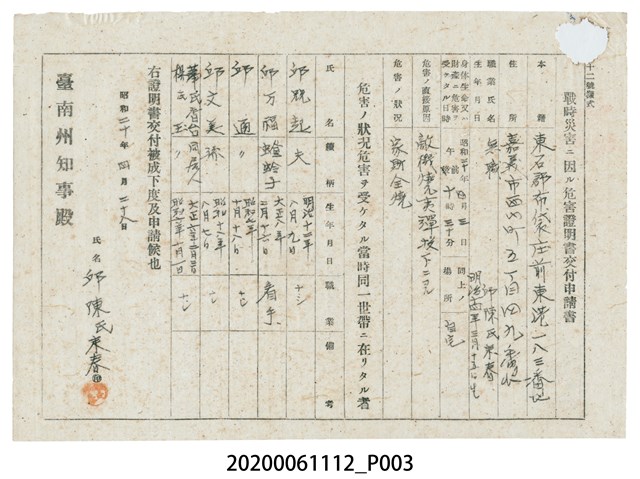 十二號樣式
戰時災害ニ因ル危害證明書交付申請書
本籍 東石郡布袋庄前東港一八三番地
住所 嘉義市西門町五丁目四九番地
職業氏名 無職 邱陳氏束春
生年月日 明治四年三月十五日生
身体生命又ハ財產ニ危害ヲ受ケタル日時 昭和二十年四月三日 午前十時三十分 同上ノ場所 自宅
危害ノ直接原因 敵機燒夷彈投下ニヨル
危害ノ狀況 家所全燒
危害ノ狀況危害ヲ受ケタル當時同一世帶ニ在リタル者
氏名 續柄 生年月日 職業 備考
邱 明治十三年八月九日
邱万福 螟蛉子 大正八年三月十六日
邱通 昭和 年十月十八日
邱文 昭和十六年八月七日
葉氏 同居人 大正 年
楊氏玉 昭和 年 月一日
右證明書交付被成下度及申請候也
昭和二十年四月二十八日
氏名 邱陳氏束春
臺南州知事殿
20200061112_P003